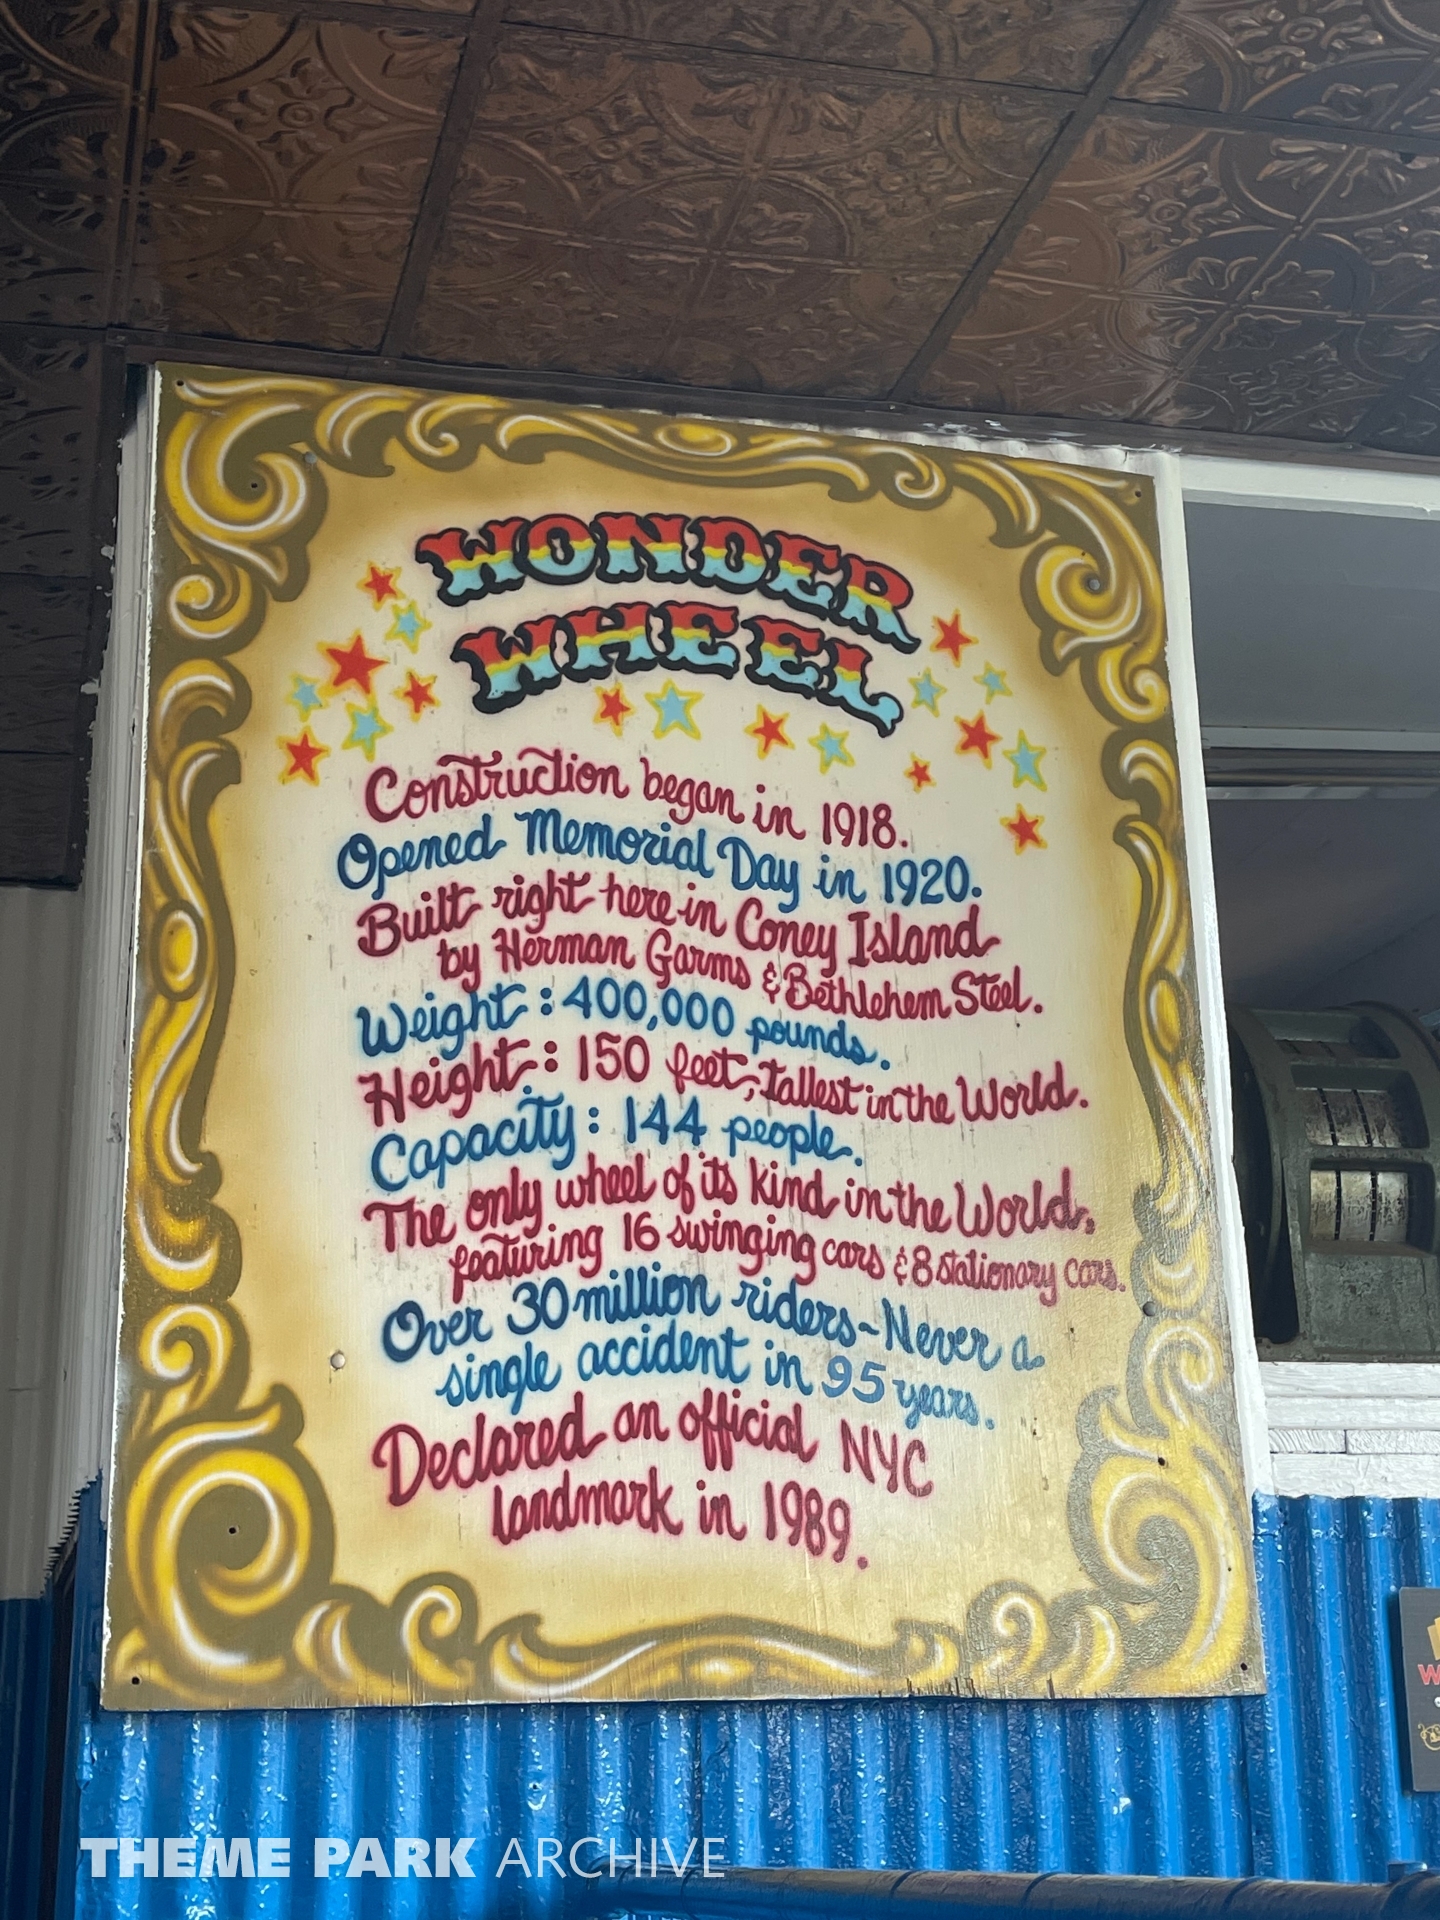 WONDER
WHEEL
Construction began in 1918.
Opened Memorial Day in 1920.
Built right here in Coney Island
by Herman Garms & Bethlehem Steel.
Weight: 400,000 pounds.
Height: 150 feet, tallest in the World.
Capacity: 144 people.
The only wheel of its kind in the World,
featuring 16 swinging cars & 8 stationary cars.
Over 30 million riders~Never a
single accident in 95 years.
Declared an official NYC
landmark in 1989.
THEME PARK ARCHIVE